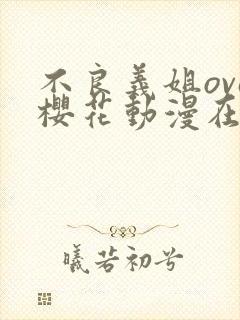 不良義姐ova
櫻花動漫在
曦若初兮